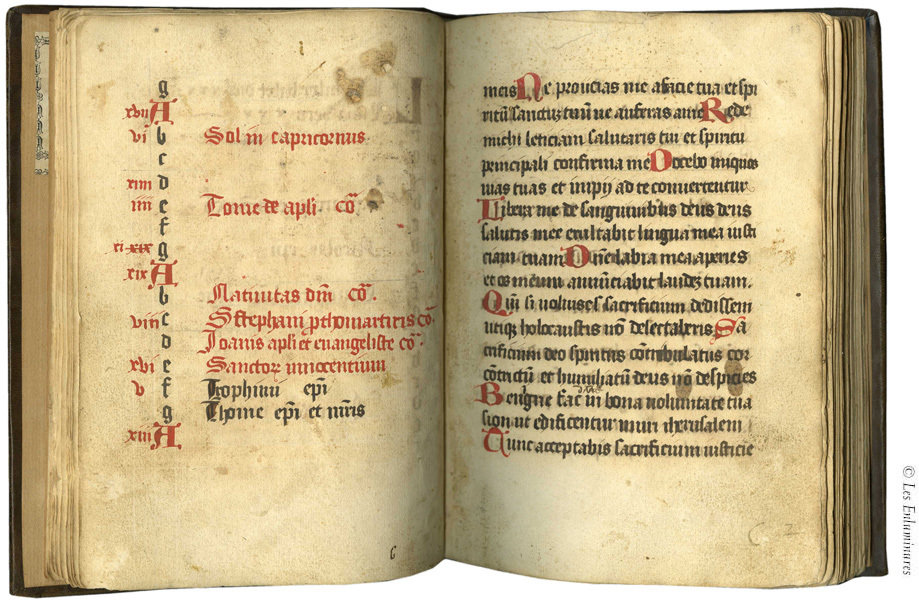 g
xvii A
vi b Sol in capricornus
c
xiiii d
iiii e Tome de apli cō
f
xi xix g
xix A
b Natiuitas dñi cō.
viii c S stephani ꝓthomartiris cō.
d Joanis apli et euangeliste cō.
xvi e Sanctoꝝ innocentium
v f Trophimi epī
g Thome epī et mris
xiii A
6
meis Ne proiicias me afacie tua et spi
ritū sanctū tuū ne auferas ame Rede
michi leticiam salutaris tui et spiritu
principali confirma me Docebo iniquos
uias tuas et impij ad te conuertentur
Libera me de sanguinibus deus deus
salutis mee exultabit lingua mea iusti
ciam tuam Dñe labia mea aperies
et os meum annunciabit laudeʒ tuam.
Qm̄ si uoluisses sacrificium dedissem
utiqʒ holocaustis nō delectaberis Sa
crificium deo spiritus cōtribulatus cor
cōtrictū et humiliatū deus nō despicies
Benigne fac dñe in bona uoluntate tua
sion ut edificentur muri iherusalem
Tunc acceptabis sacrificium iusticie
C 2
© Les Enluminures